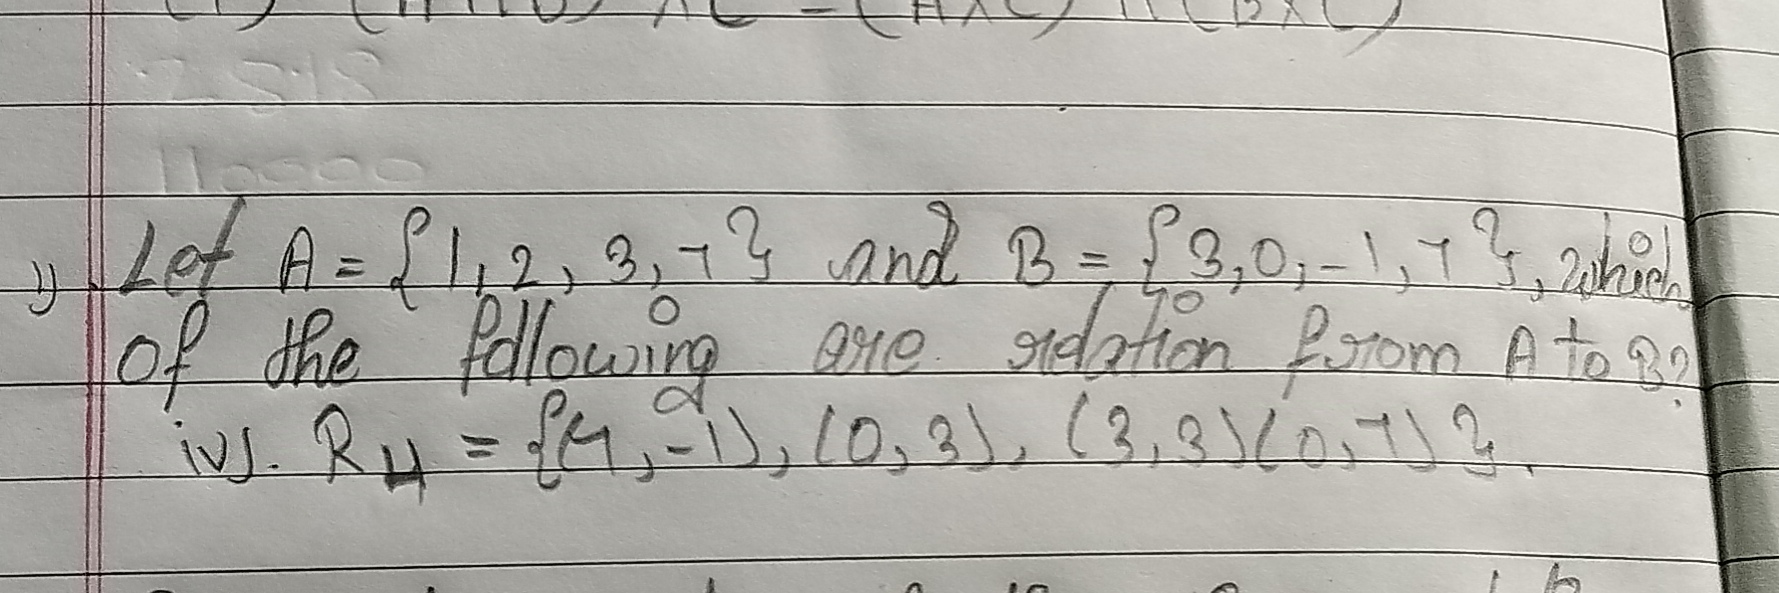 1) Let A = {1, 2, 3, 7} and B = {3, 0, -1, 7}, which
of the following are relation from A to B?
iv). R4 = {(7, -1), (0, 3), (3, 3)(0, 7)}.